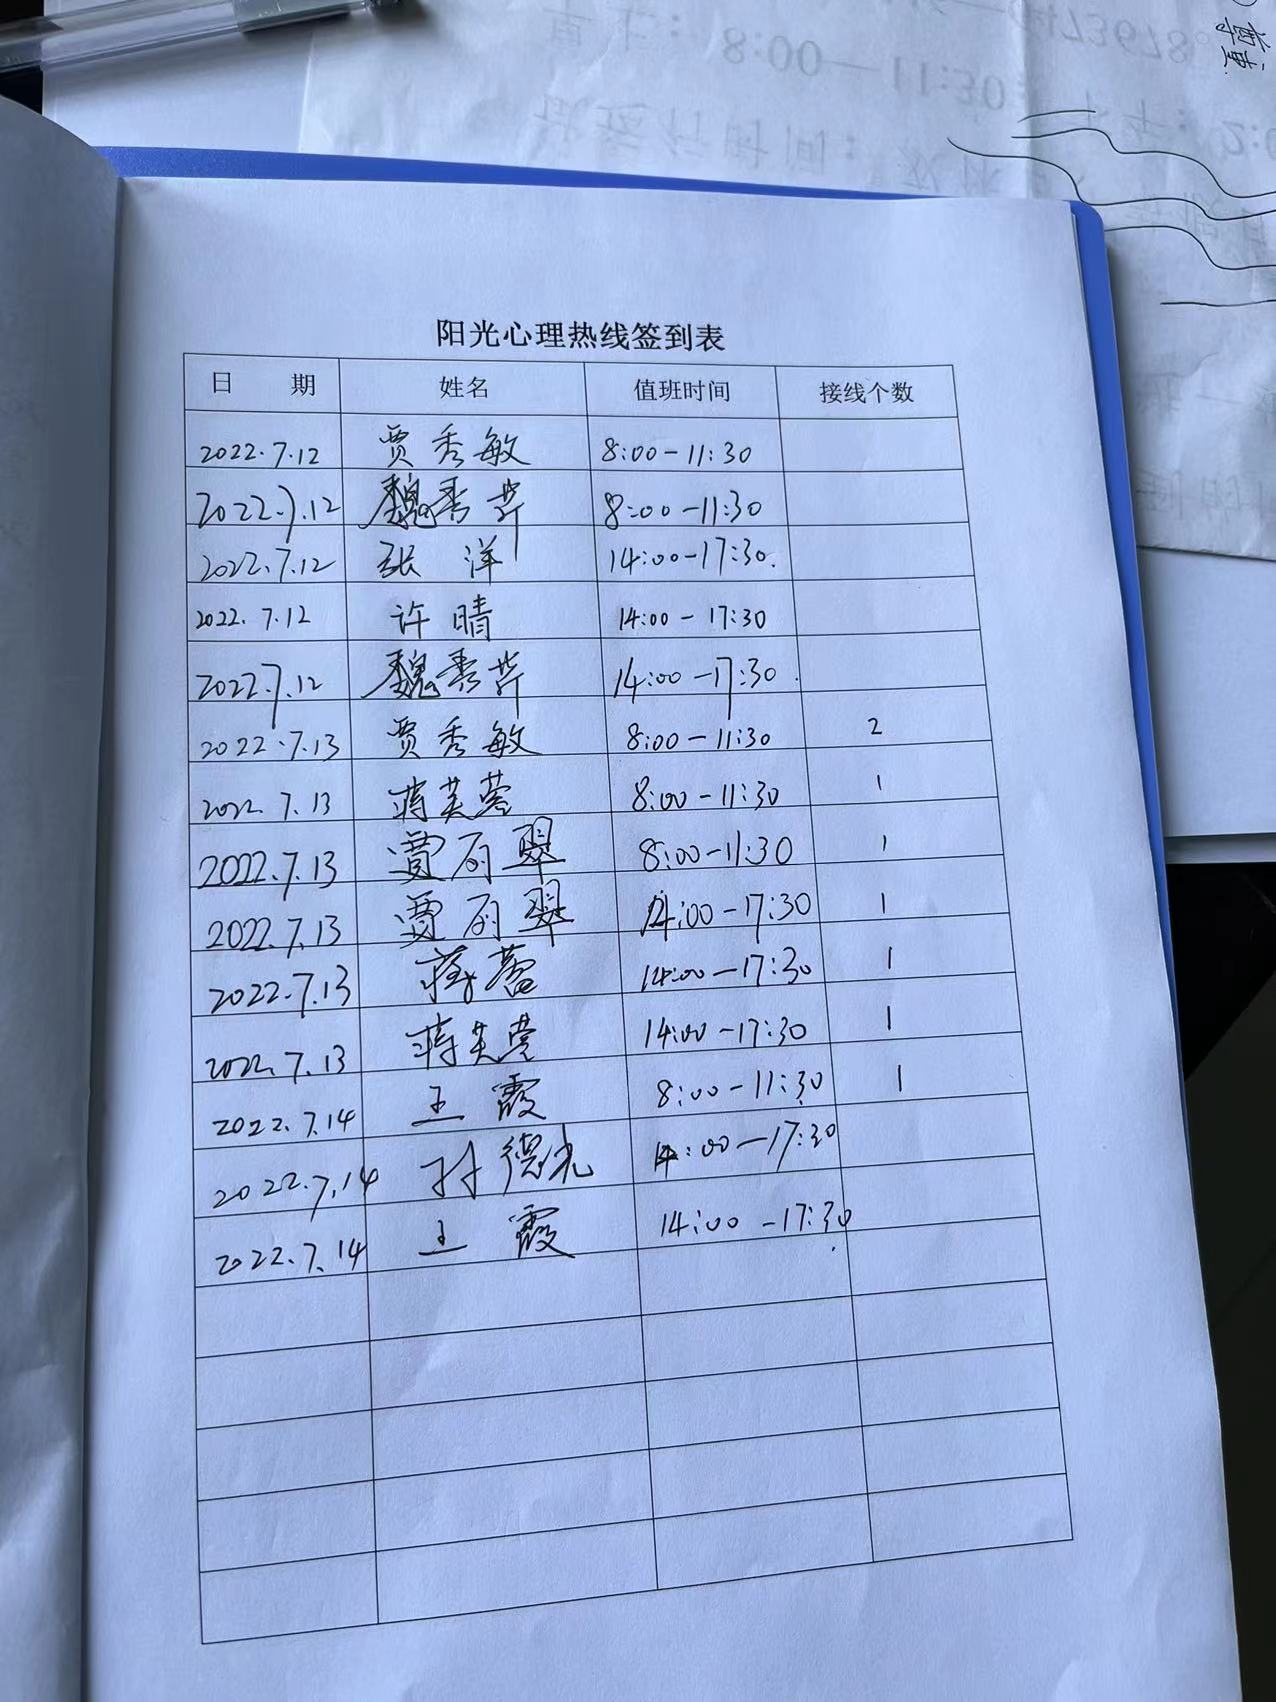 8:00—11:30
阳光心理热线签到表
日 期 姓名 值班时间 接线个数
2022.7.12 贾秀敏 8:00-11:30
2022.7.12 魏秀芹 8:00-11:30
2022.7.12 张洋 14:00-17:30.
2022.7.12 许晴 14:00-17:30
2022.7.12 魏秀芹 14:00-17:30.
2022.7.13 贾秀敏 8:00-11:30 2
2022.7.13 蒋芙蓉 8:00-11:30 1
2022.7.13 贾丽翠 8:00-11:30 1
2022.7.13 贾丽翠 14:00-17:30 1
2022.7.13 14:00-17:30 1
2022.7.13 蒋芙蓉 14:00-17:30 1
2022.7.14 王霞 8:00-11:30 1
2022.7.14 孙德光 14:00-17:30
2022.7.14 王霞 14:00-17:30